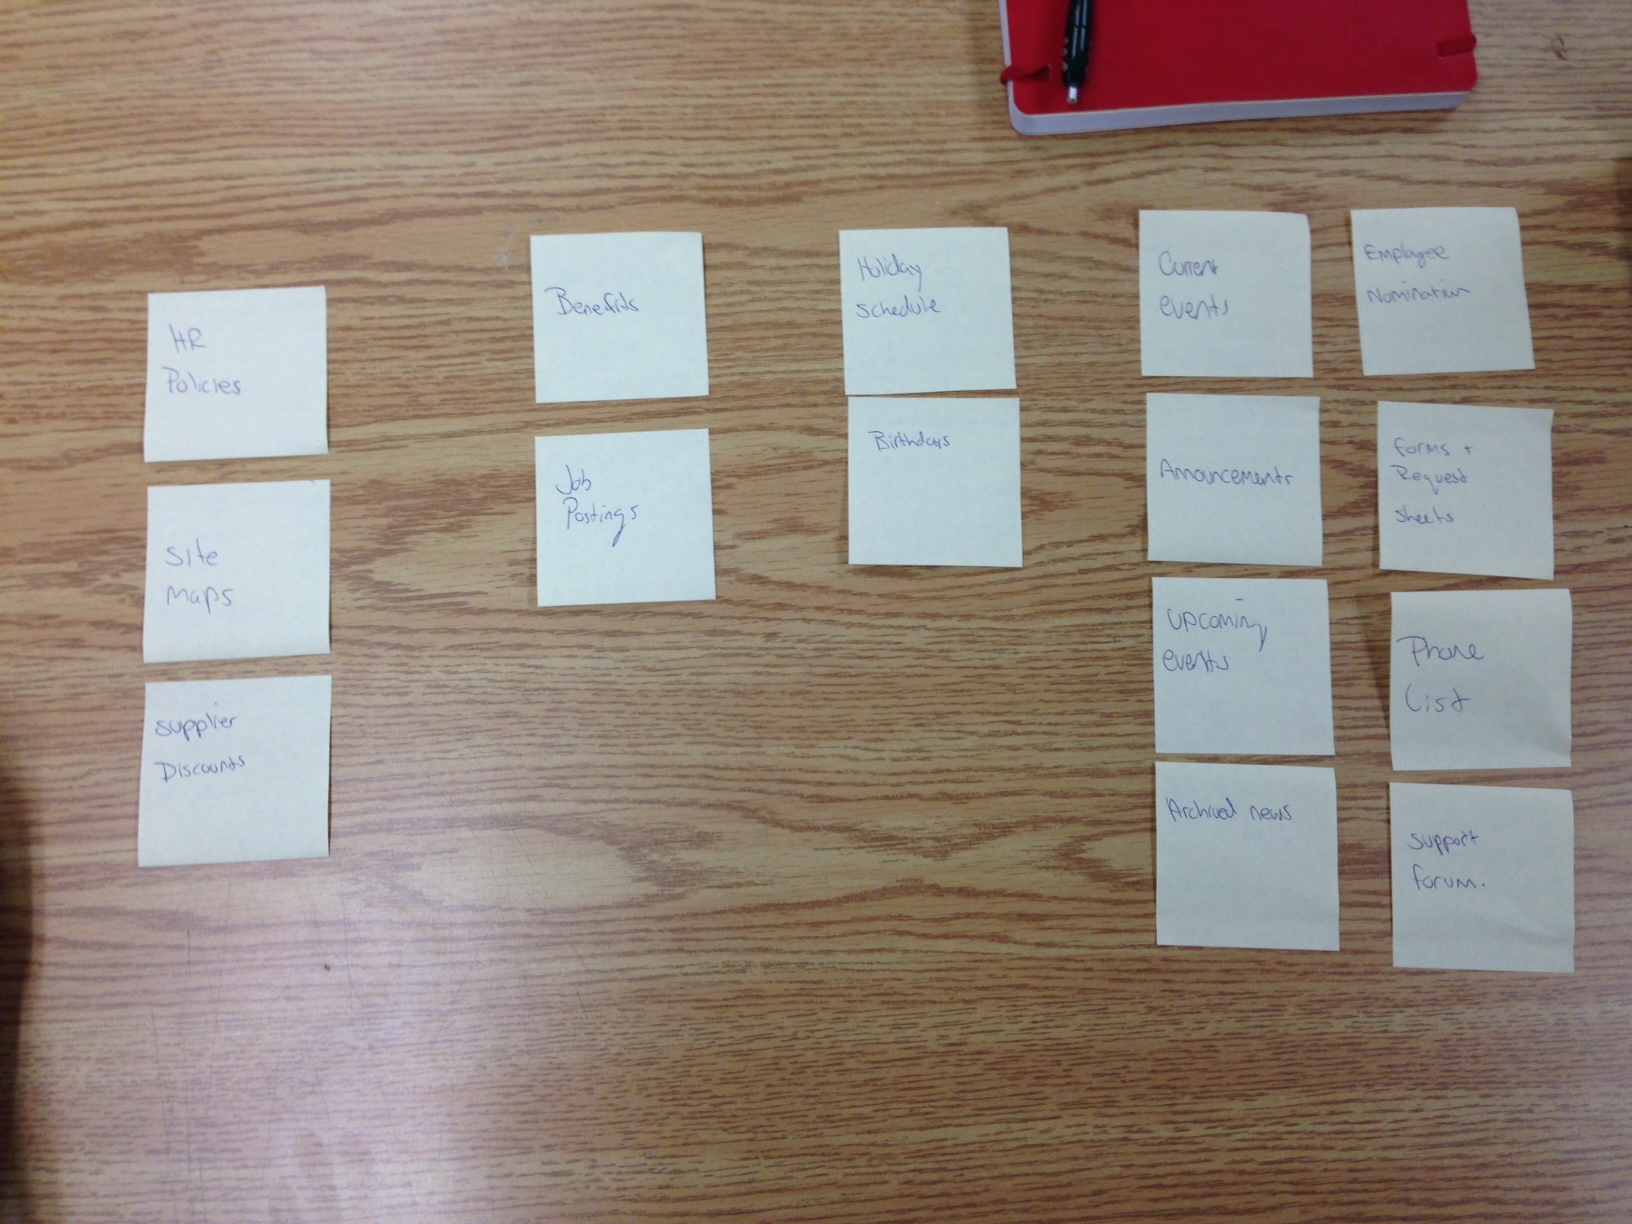 HR
Policies
Site
Maps
Supplier
Discounts
Benefits
Job
Postings
Holiday
Schedule
Birthdays
Current
events
Announcements
Upcoming
events
Archived news
Employee
Nomination
Forms +
Request
Sheets
Phone
List
Support
forum.